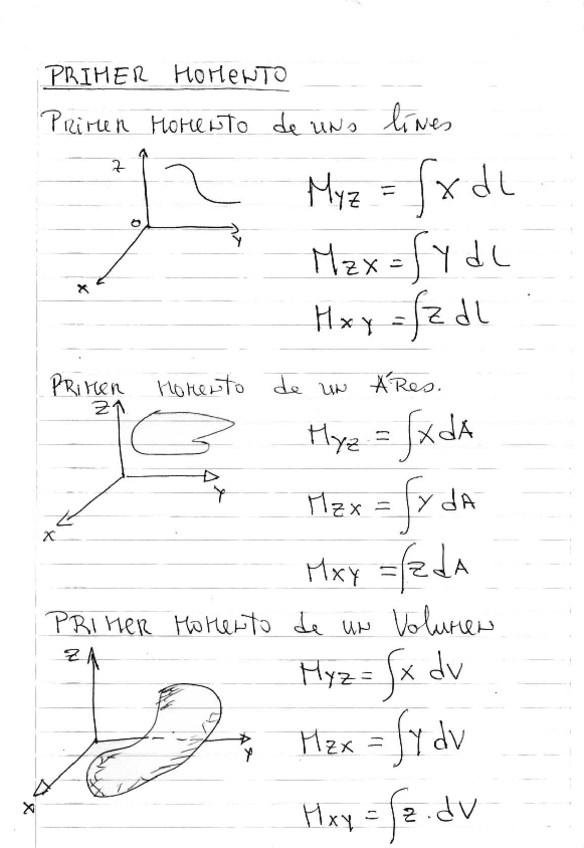 PRIMER MOMENTO
Primer Momento de una línea
Z
O
Y
X
Myz = ∫x dL
Mzx = ∫y dL
Mxy = ∫z dL
Primer Momento de un Área.
Z
Y
X
Myz = ∫x dA
Mzx = ∫y dA
Mxy = ∫z dA
PRIMER MOMENTO de un Volumen
Z
Y
X
Myz = ∫x dV
Mzx = ∫y dV
Mxy = ∫z . dV